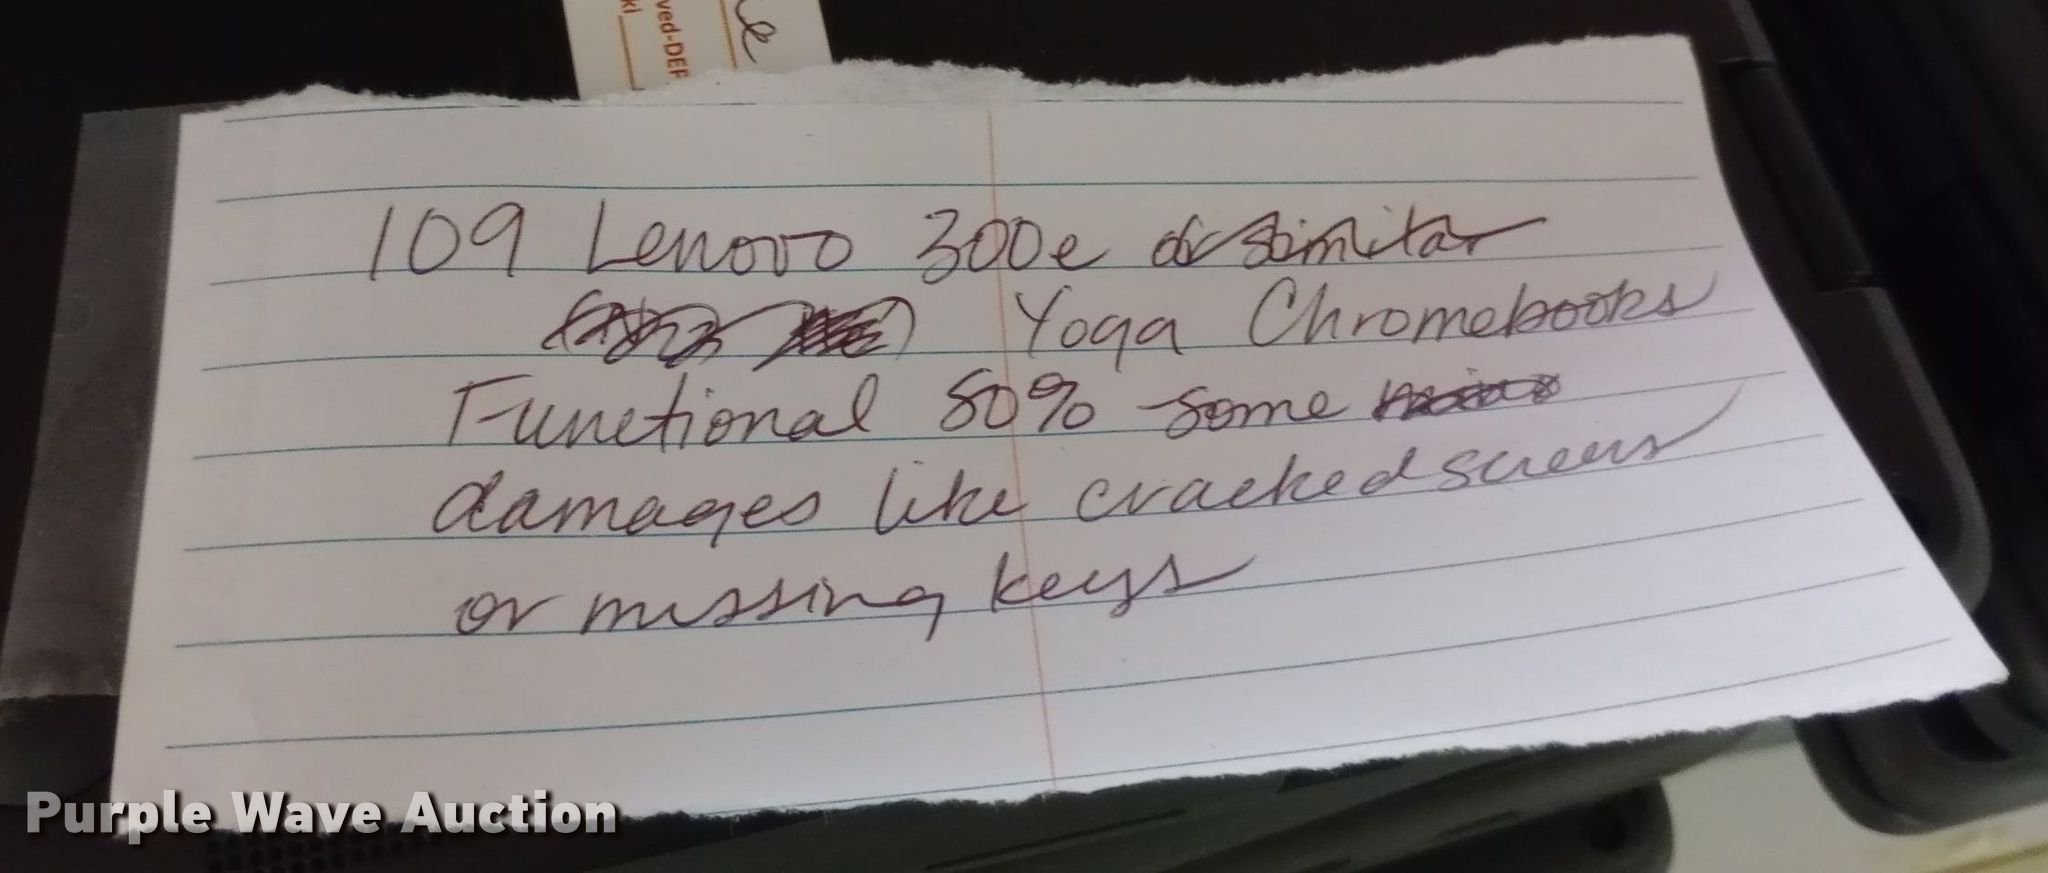 ie
ved-DEF
ki
109 Lenovo 300e or similar
Yoga Chromebooks
Functional 80% some
damages like cracked screens
or missing keys
Purple Wave Auction